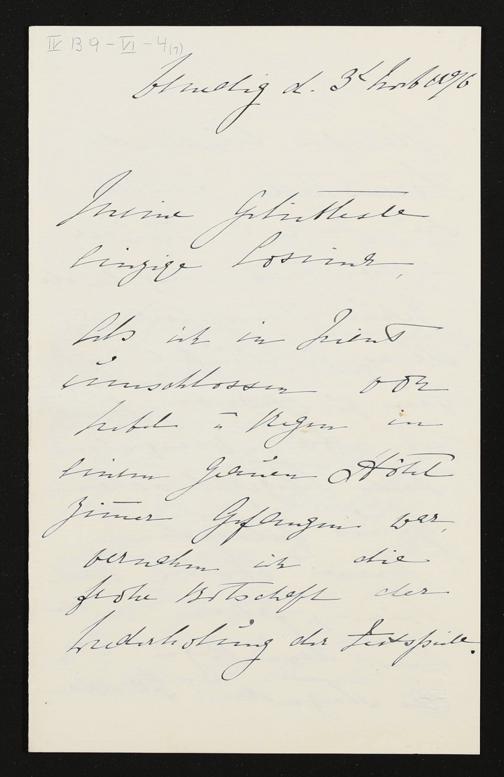 IV B 9 - VI - 4 (7)
Venedig d. 3t Novb 1896
Meine Geliebteste
einzige Cosima,
Als ich in Trient
umschlossen von
Nebel u Regen in
einem grauen Hôtel
zimer Gefangen war,
vernahm ich die
frohe Botschaft der
Wiederholung der Festspiele.